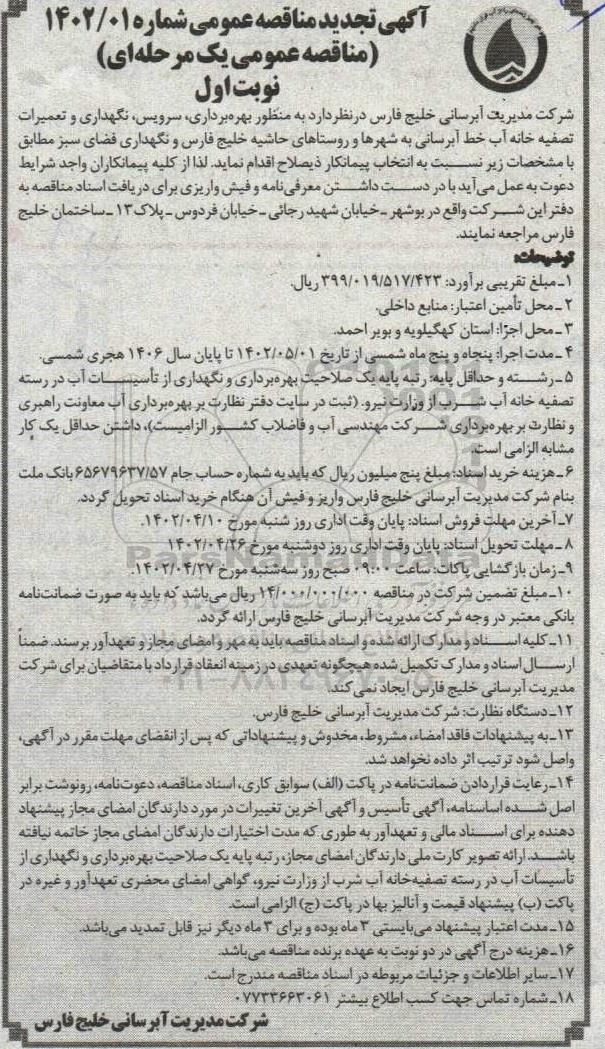 آگهی تجدید مناقصه عمومی شماره ۱۴۰۲/۰۱
(مناقصه عمومی یک مرحله‌ای)
نوبت اول
شرکت مدیریت آبرسانی خلیج فارس درنظر دارد به منظور بهره‌برداری، سرویس، نگهداری و تعمیرات
تصفیه خانه آب خط آبرسانی به شهرها و روستاهای حاشیه خلیج فارس و نگهداری فضای سبز مطابق
با مشخصات زیر نسبت به انتخاب پیمانکار ذیصلاح اقدام نماید. لذا از کلیه پیمانکاران واجد شرایط
دعوت به عمل می‌آید با در دست داشتن معرفی‌نامه و فیش واریزی برای دریافت اسناد مناقصه به
دفتر این شرکت واقع در بوشهر ـ خیابان شهید رجائی ـ خیابان فردوس ـ پلاک۱۳ ـ ساختمان خلیج
فارس مراجعه نمایند.
توضیحات:
۱ـ مبلغ تقریبی برآورد: ۳۹۹/۰۱۹/۵۱۷/۴۲۳ ریال.
۲ـ محل تأمین اعتبار: منابع داخلی.
۳ـ محل اجرا: استان کهگیلویه و بویر احمد.
۴ـ مدت اجرا: پنجاه و پنج ماه شمسی از تاریخ ۱۴۰۲/۰۵/۰۱ تا پایان سال ۱۴۰۶ هجری شمسی.
۵ـ رشته و حداقل پایه: رتبه پایه یک صلاحیت بهره‌برداری و نگهداری از تأسیسات آب در رسته
تصفیه خانه آب شرب از وزارت نیرو. (ثبت در سایت دفتر نظارت بر بهره‌برداری آب معاونت راهبری
و نظارت بر بهره‌برداری شرکت مهندسی آب و فاضلاب کشور الزامیست)، داشتن حداقل یک کار
مشابه الزامی است.
۶ـ هزینه خرید اسناد: مبلغ پنج میلیون ریال که باید به شماره حساب جام ۶۵۶۷۹۶۳۷/۵۷ بانک ملت
بنام شرکت مدیریت آبرسانی خلیج فارس واریز و فیش آن هنگام خرید اسناد تحویل گردد.
۷ـ آخرین مهلت فروش اسناد: پایان وقت اداری روز شنبه مورخ ۱۴۰۲/۰۴/۱۰.
۸ـ مهلت تحویل اسناد: پایان وقت اداری روز دوشنبه مورخ ۱۴۰۲/۰۴/۲۶
۹ـ زمان بازگشایی پاکات: ساعت ۰۹:۰۰ صبح روز سه‌شنبه مورخ ۱۴۰۲/۰۴/۲۷.
۱۰ـ مبلغ تضمین شرکت در مناقصه ۱۴/۰۰۰/۰۰۰/۰۰۰ ریال می‌باشد که باید به صورت ضمانت‌نامه
بانکی معتبر در وجه شرکت مدیریت آبرسانی خلیج فارس ارائه گردد.
۱۱ـ کلیه اسناد و مدارک ارائه شده و اسناد مناقصه باید به مهر و امضای مجاز و تعهدآور برسند. ضمناً
ارسال اسناد و مدارک تکمیل شده هیچگونه تعهدی در زمینه انعقاد قرارداد با متقاضیان برای شرکت
مدیریت آبرسانی خلیج فارس ایجاد نمی‌کند.
۱۲ـ دستگاه نظارت: شرکت مدیریت آبرسانی خلیج فارس.
۱۳ـ به پیشنهادات فاقد امضاء، مشروط، مخدوش و پیشنهاداتی که پس از انقضای مهلت مقرر در آگهی،
واصل شود ترتیب اثر داده نخواهد شد.
۱۴ـ رعایت قراردادن ضمانت‌نامه در پاکت (الف) سوابق کاری، اسناد مناقصه، دعوت‌نامه، رونوشت برابر
اصل شده اساسنامه، آگهی تأسیس و آگهی آخرین تغییرات در مورد دارندگان امضای مجاز پیشنهاد
دهنده برای اسناد مالی و تعهدآور به طوری که مدت اختیارات دارندگان امضای مجاز خاتمه نیافته
باشد. ارائه تصویر کارت ملی دارندگان امضای مجاز، رتبه پایه یک صلاحیت بهره‌برداری و نگهداری از
تأسیسات آب در رسته تصفیه‌خانه آب شرب از وزارت نیرو، گواهی امضای محضری تعهدآور و غیره در
پاکت (ب) پیشنهاد قیمت و آنالیز بها در پاکت (ج) الزامی است.
۱۵ـ مدت اعتبار پیشنهاد می‌بایستی ۳ ماه بوده و برای ۳ ماه دیگر نیز قابل تمدید می‌باشد.
۱۶ـ هزینه درج آگهی در دو نوبت به عهده برنده مناقصه می‌باشد.
۱۷ـ سایر اطلاعات و جزئیات مربوطه در اسناد مناقصه مندرج است.
۱۸ـ شماره تماس جهت کسب اطلاع بیشتر ۰۷۷۳۳۶۶۳۰۶۱
شرکت مدیریت آبرسانی خلیج فارس